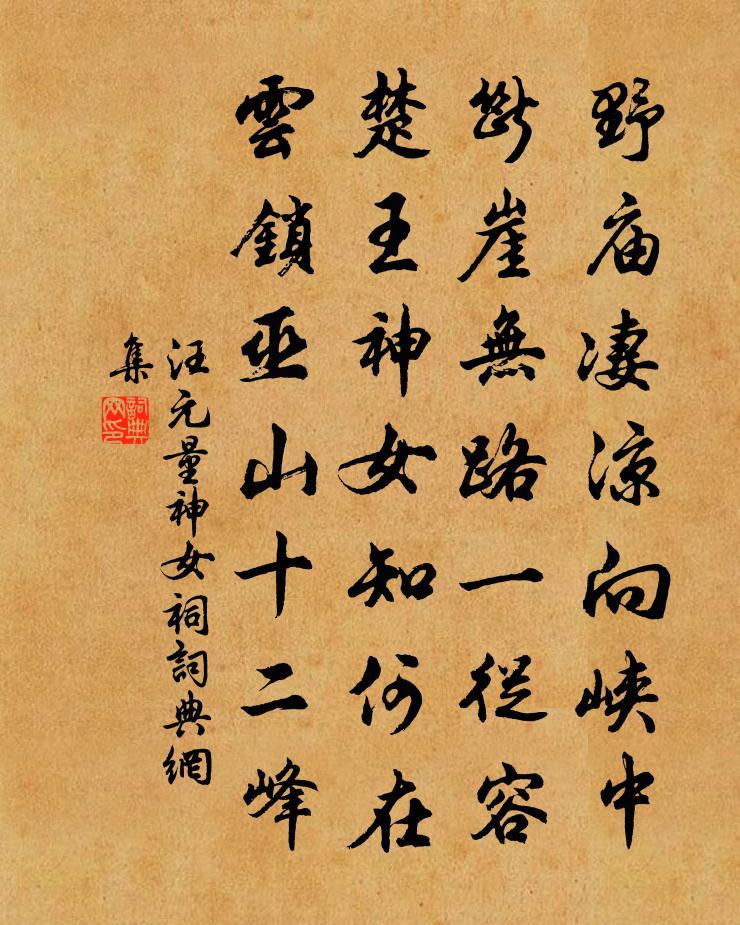 野庙凄凉向峡中
斷崖無路一從容
楚王神女知何在
雲鎖巫山十二峰
汪元量神女祠詞典網
集
詞典
网印